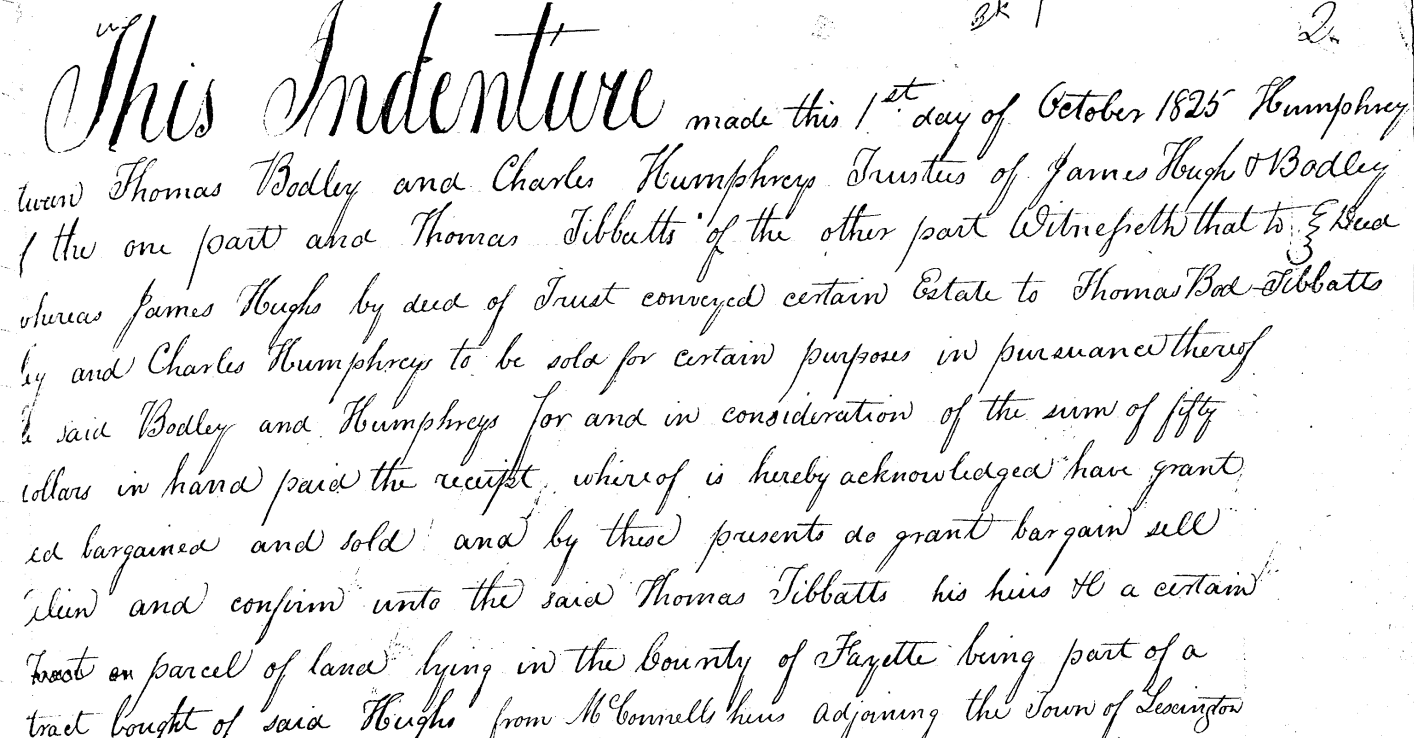 Bk 1 2
This Indenture made this 1st day of October 1825 Humphrey
tween Thomas Bodley and Charles Humphreys Trustees of James Hughs & Bodley
f the one part and Thomas Tibbatts of the other part Witnesseth that to Deed
whereas James Hughs by deed of Trust conveyed certain Estate to Thomas Bod Tibbatts
ley and Charles Humphreys to be sold for certain purposes in pursuance thereof
said Bodley and Humphreys for and in consideration of the sum of fifty
dollars in hand paid the receipt whereof is hereby acknowledged have grant
ed bargained and sold and by these presents do grant bargain sell
alien and confirm unto the said Thomas Tibbatts his heirs &c a certain
tract or parcel of land lying in the County of Fayette being part of a
tract bought of said Hughs from McConnells heirs adjoining the Town of Lexington